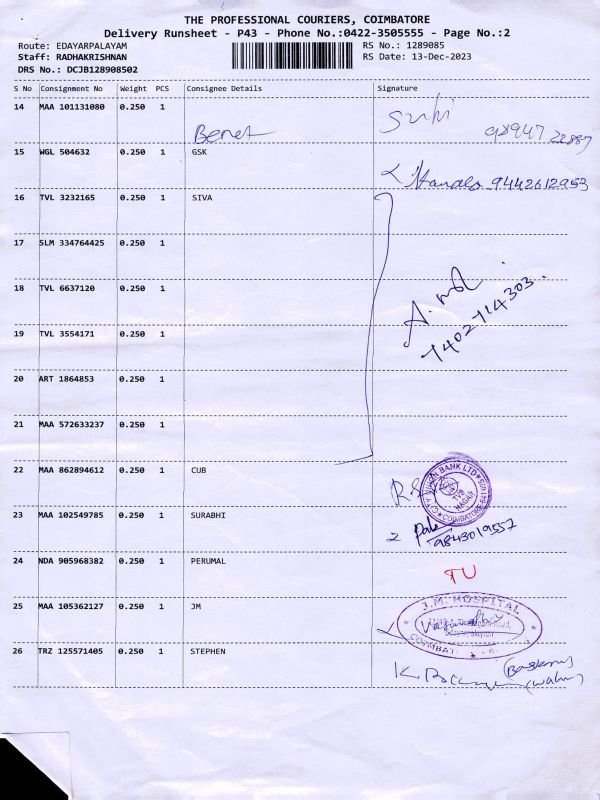 THE PROFESSIONAL COURIERS, COIMBATORE
Delivery Runsheet - P43 - Phone No.:0422-3505555 - Page No.:2
Route: EDAYARPALAYAM
Staff: RADHAKRISHNAN
DRS No.: DCJB128908502
RS No.: 1289085
RS Date: 13-Dec-2023
S No Consignment No Weight PCS Consignee Details Signature
14 MAA 101131080 0.250 1
Benet
98947 22887
15 WGL 504632 0.250 1 GSK
9442612953
16 TVL 3232165 0.250 1 SIVA
17 SLM 334764425 0.250 1
18 TVL 6637120 0.250 1
7402714303
19 TVL 3554171 0.250 1
20 ART 1864853 0.250 1
21 MAA 572633237 0.250 1
22 MAA 862894612 0.250 1 CUB
CITY UNION BANK LTD
TVS NAGAR
COIMBATORE
23 MAA 102549785 0.250 1 SURABHI
9843019557
24 NDA 905968382 0.250 1 PERUMAL
TU
25 MAA 105362127 0.250 1 JM
J.M. HOSPITAL
26 TRZ 125571405 0.250 1 STEPHEN